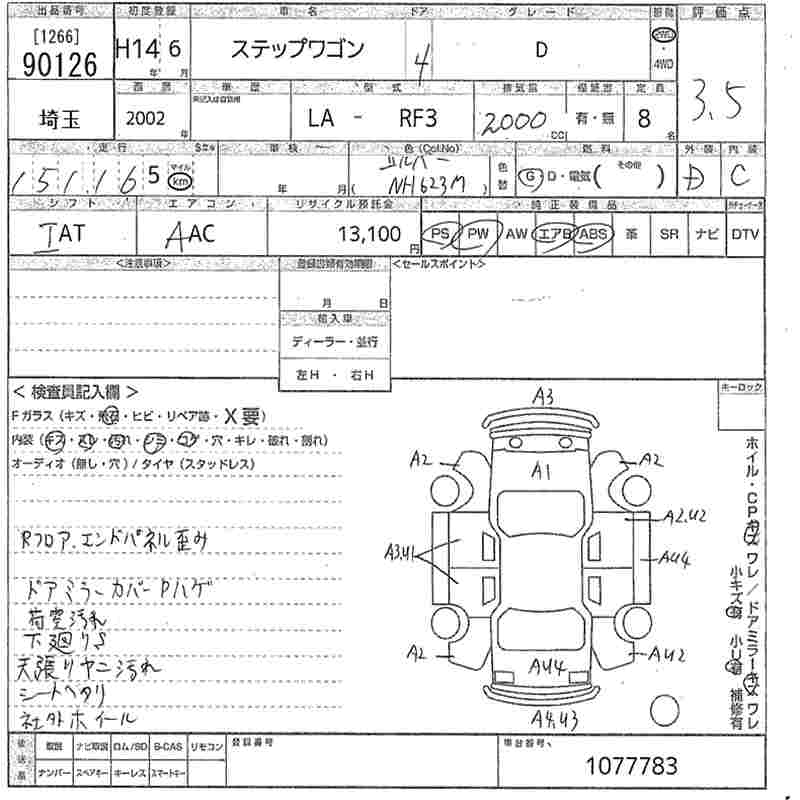 出品番号 初度登録 車名 ドア グレード 評価点
[1266]
90126 H14年 6月 ステップワゴン 4 D 2WD・4WD 3.5
車歴 型式 排気量 保証書 定員
埼玉 2002年 LA - RF3 2000cc 有・無 8名
走行 車検 色(Col.No) 燃料 外装 内装
151165 マイル km 年 月 シルバー (NH623M) 色替 G D・電気(その他) D C
シフト エアコン リサイクル預託金 純正装備品
IAT AAC 13,100円 PS PW AW エアB ABS 革 SR ナビ DTV
<注意事項> 登録証有効期限 <セールスポイント>
月 日
輸入車
ディーラー・並行
左H ・ 右H
<検査員記入欄> キーロック
Fガラス(キズ・飛石・ヒビ・リペア跡・X要)
内装(キズ・スレ・汚れ・シミ・コゲ・穴・キレ・破れ・割れ)
オーディオ(無し・穴)/タイヤ(スタッドレス)
Rフロア.エンドパネル歪み
ドアミラーカバーPハゲ
荷室汚れ
下廻りS
天張りヤニ汚れ
シートヘタリ
社外ホイール
A3
A2 A1 A2
A3,U1 A2,U2
AU4
A2 AU4 AU2
A4,U3
ホイル・CPキズ ワレ/ドアミラーキズ ワレ
小キズ 小U 補修有
後送品 取説 ナビ取説 ロム/SD B-CAS リモコン 登録番号 車台番号
ナンバー スペアキー キーレス スマートキー 1077783